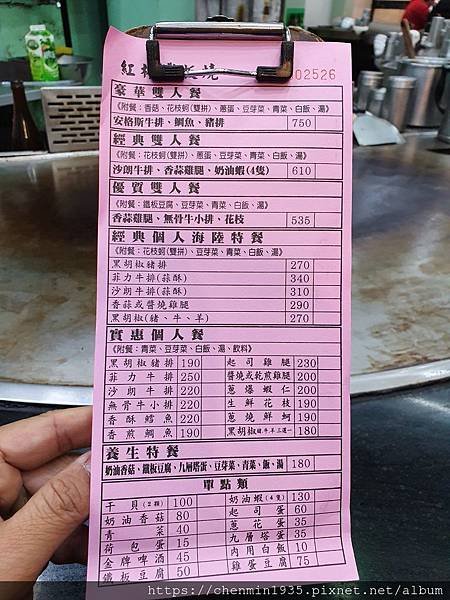 02526
豪華雙人餐
《附餐：香菇、花枝蚵(雙拼)、蔥蛋、豆芽菜、青菜、白飯、湯》
安格斯牛排、鯛魚、豬排 750
經典雙人餐
《附餐：花枝蚵(雙拼)、蔥蛋、豆芽菜、青菜、白飯、湯》
沙朗牛排、香蒜雞腿、奶油蝦(4隻) 610
優質雙人餐
《附餐：鐵板豆腐、豆芽菜、青菜、白飯、湯》
香蒜雞腿、無骨牛小排、花枝 535
經典個人海陸特餐
《附餐：花枝蚵(雙拼)、豆芽菜、青菜、白飯、湯》
黑胡椒豬排 270
菲力牛排(蒜酥) 340
沙朗牛排(蒜酥) 310
香蒜或醬燒雞腿 290
黑胡椒(豬、牛、羊) 270
實惠個人餐
《附餐：青菜、豆芽菜、白飯、湯、飲料》
黑胡椒豬排 190 起司雞腿 230
菲力牛排 250 醬燒或乾煎雞腿 200
沙朗牛排 220 蔥爆蝦仁 200
無骨牛小排 220 生鮮花枝 190
香酥鱈魚 220 蔥燒鮮蚵 190
香煎鯛魚 190 黑胡椒豬.牛.羊三選一 180
養生特餐
奶油香菇、鐵板豆腐、九層塔蛋、豆芽菜、青菜、飯、湯 180
單點類
干貝(2顆) 100 奶油蝦(4隻) 130
奶油香菇 80 起司蛋 60
青菜 40 蔥花蛋 35
荷包蛋 15 九層塔蛋 35
金牌啤酒 45 內用白飯 10
鐵板豆腐 50 雞蛋豆腐 75
https://chenmin1935.pixnet.net/album